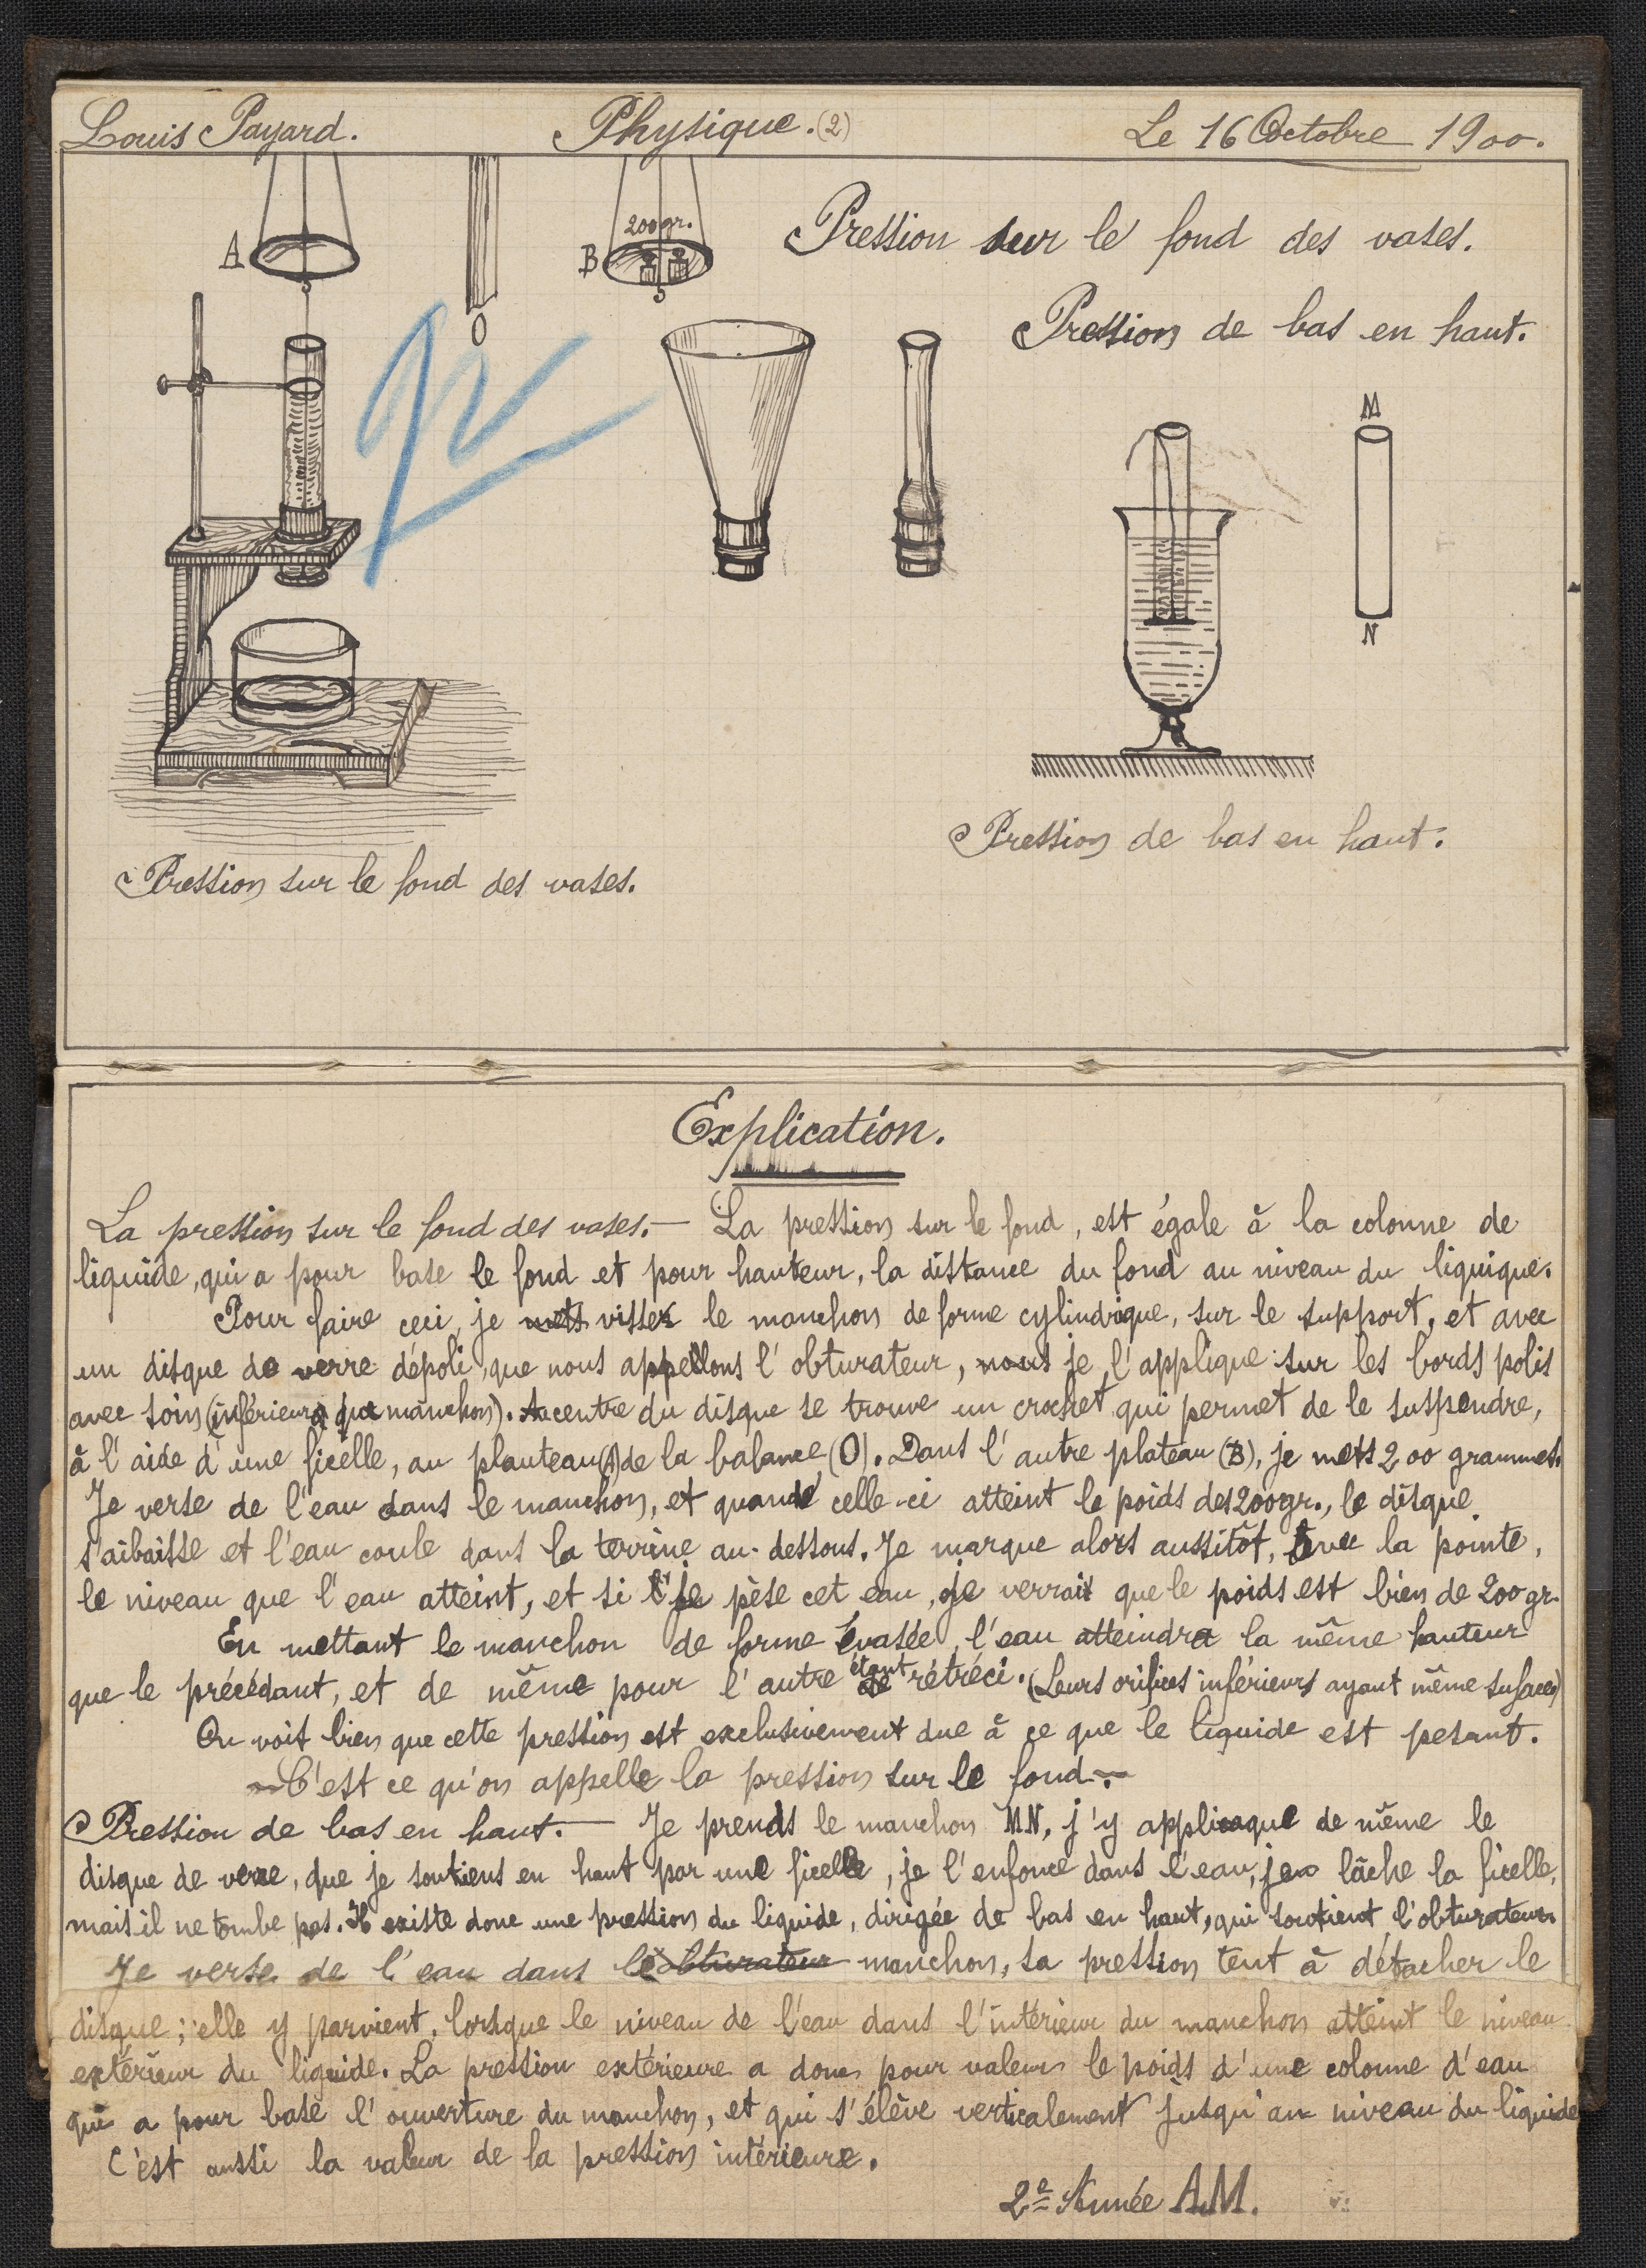 Louis Payard. Physique. (2) Le 16 Octobre 1900.
A
O
200gr.
B
Pression sur le fond des vases.
Pression de bas en haut.
M
N
Pression de bas en haut.
Pression sur le fond des vases.
Explication.
La pression sur le fond des vases.— La pression sur le fond, est égale à la colonne de
liquide, qui a pour base le fond et pour hauteur, la distance du fond au niveau du liquique.
Pour faire ceci, je mets visser le manchon de forme cylindrique, sur le support, et avec
un disque de verre dépoli, que nous appellons l'obturateur, nous je l'applique sur les bords polis
avec soin (inférieurs du manchon). Au centre du disque se trouve un crochet qui permet de le suspendre,
à l'aide d'une ficelle, au plauteau (A) de la balance (O). Dans l'autre plateau (B), je mets 200 grammes.
Je verse de l'eau dans le manchon, et quand celle-ci atteint le poids des 200gr., le disque
s'aibaisse et l'eau coule dans la terrine au-dessous. Je marque alors aussitôt, avec la pointe,
le niveau que l'eau atteint, et si je pèse cet eau, je verrait que le poids est bien de 200 gr.
En mettant le manchon de forme évasée, l'eau atteindra la même hauteur
que le précédant, et de même pour l'autre étant rétréci. (Leurs orifices inférieurs ayant même sufaces)
On voit bien que cette pression est exclusivement due à ce que le liquide est pesant.
— C'est ce qu'on appelle la pression sur le fond. —
Pression de bas en haut.— Je prends le manchon MN, j'y applique de même le
disque de verre, que je soutiens en haut par une ficelle, je l'enfonce dans l'eau, je lâche la ficelle,
mais il ne tombe pas. Il existe donc une pression du liquide, dirigée de bas en haut, qui soutient l'obturateur
Je verse de l'eau dans le obturateur manchon, sa pression tent à détacher le
disque; elle y parvient, lorsque le niveau de l'eau dans l'intérieur du manchon atteint le niveau
extérieur du liquide. La pression extérieure a donc pour valeur le poids d'une colonne d'eau
qui a pour base l'ouverture du manchon, et qui s'élève verticalement jusqu'au niveau du liquide
C'est aussi la valeur de la pression intérieure.
2e Année A.M.